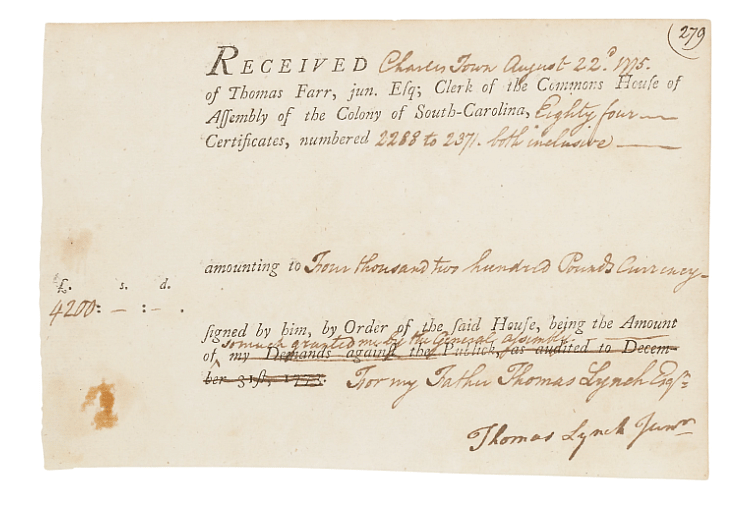 279
RECEIVED Charles Town August 22.d 1775.
of Thomas Farr, jun. Eſq; Clerk of the Commons Houſe of
Aſſembly of the Colony of South-Carolina, Eighty four
Certificates, numbered 2288 to 2371. both incluſive
amounting to Four thousand two hundred Pounds Currency
£. s. d.
4200: – : – .
ſigned by him, by Order of the ſaid Houſe, being the Amount
so much granted me by the General Assembly.
of my Demands againſt the Publick, as audited to Decem-
ber 31ſt, 1773. For my Father Thomas Lynch Esqr
Thomas Lynch Junr